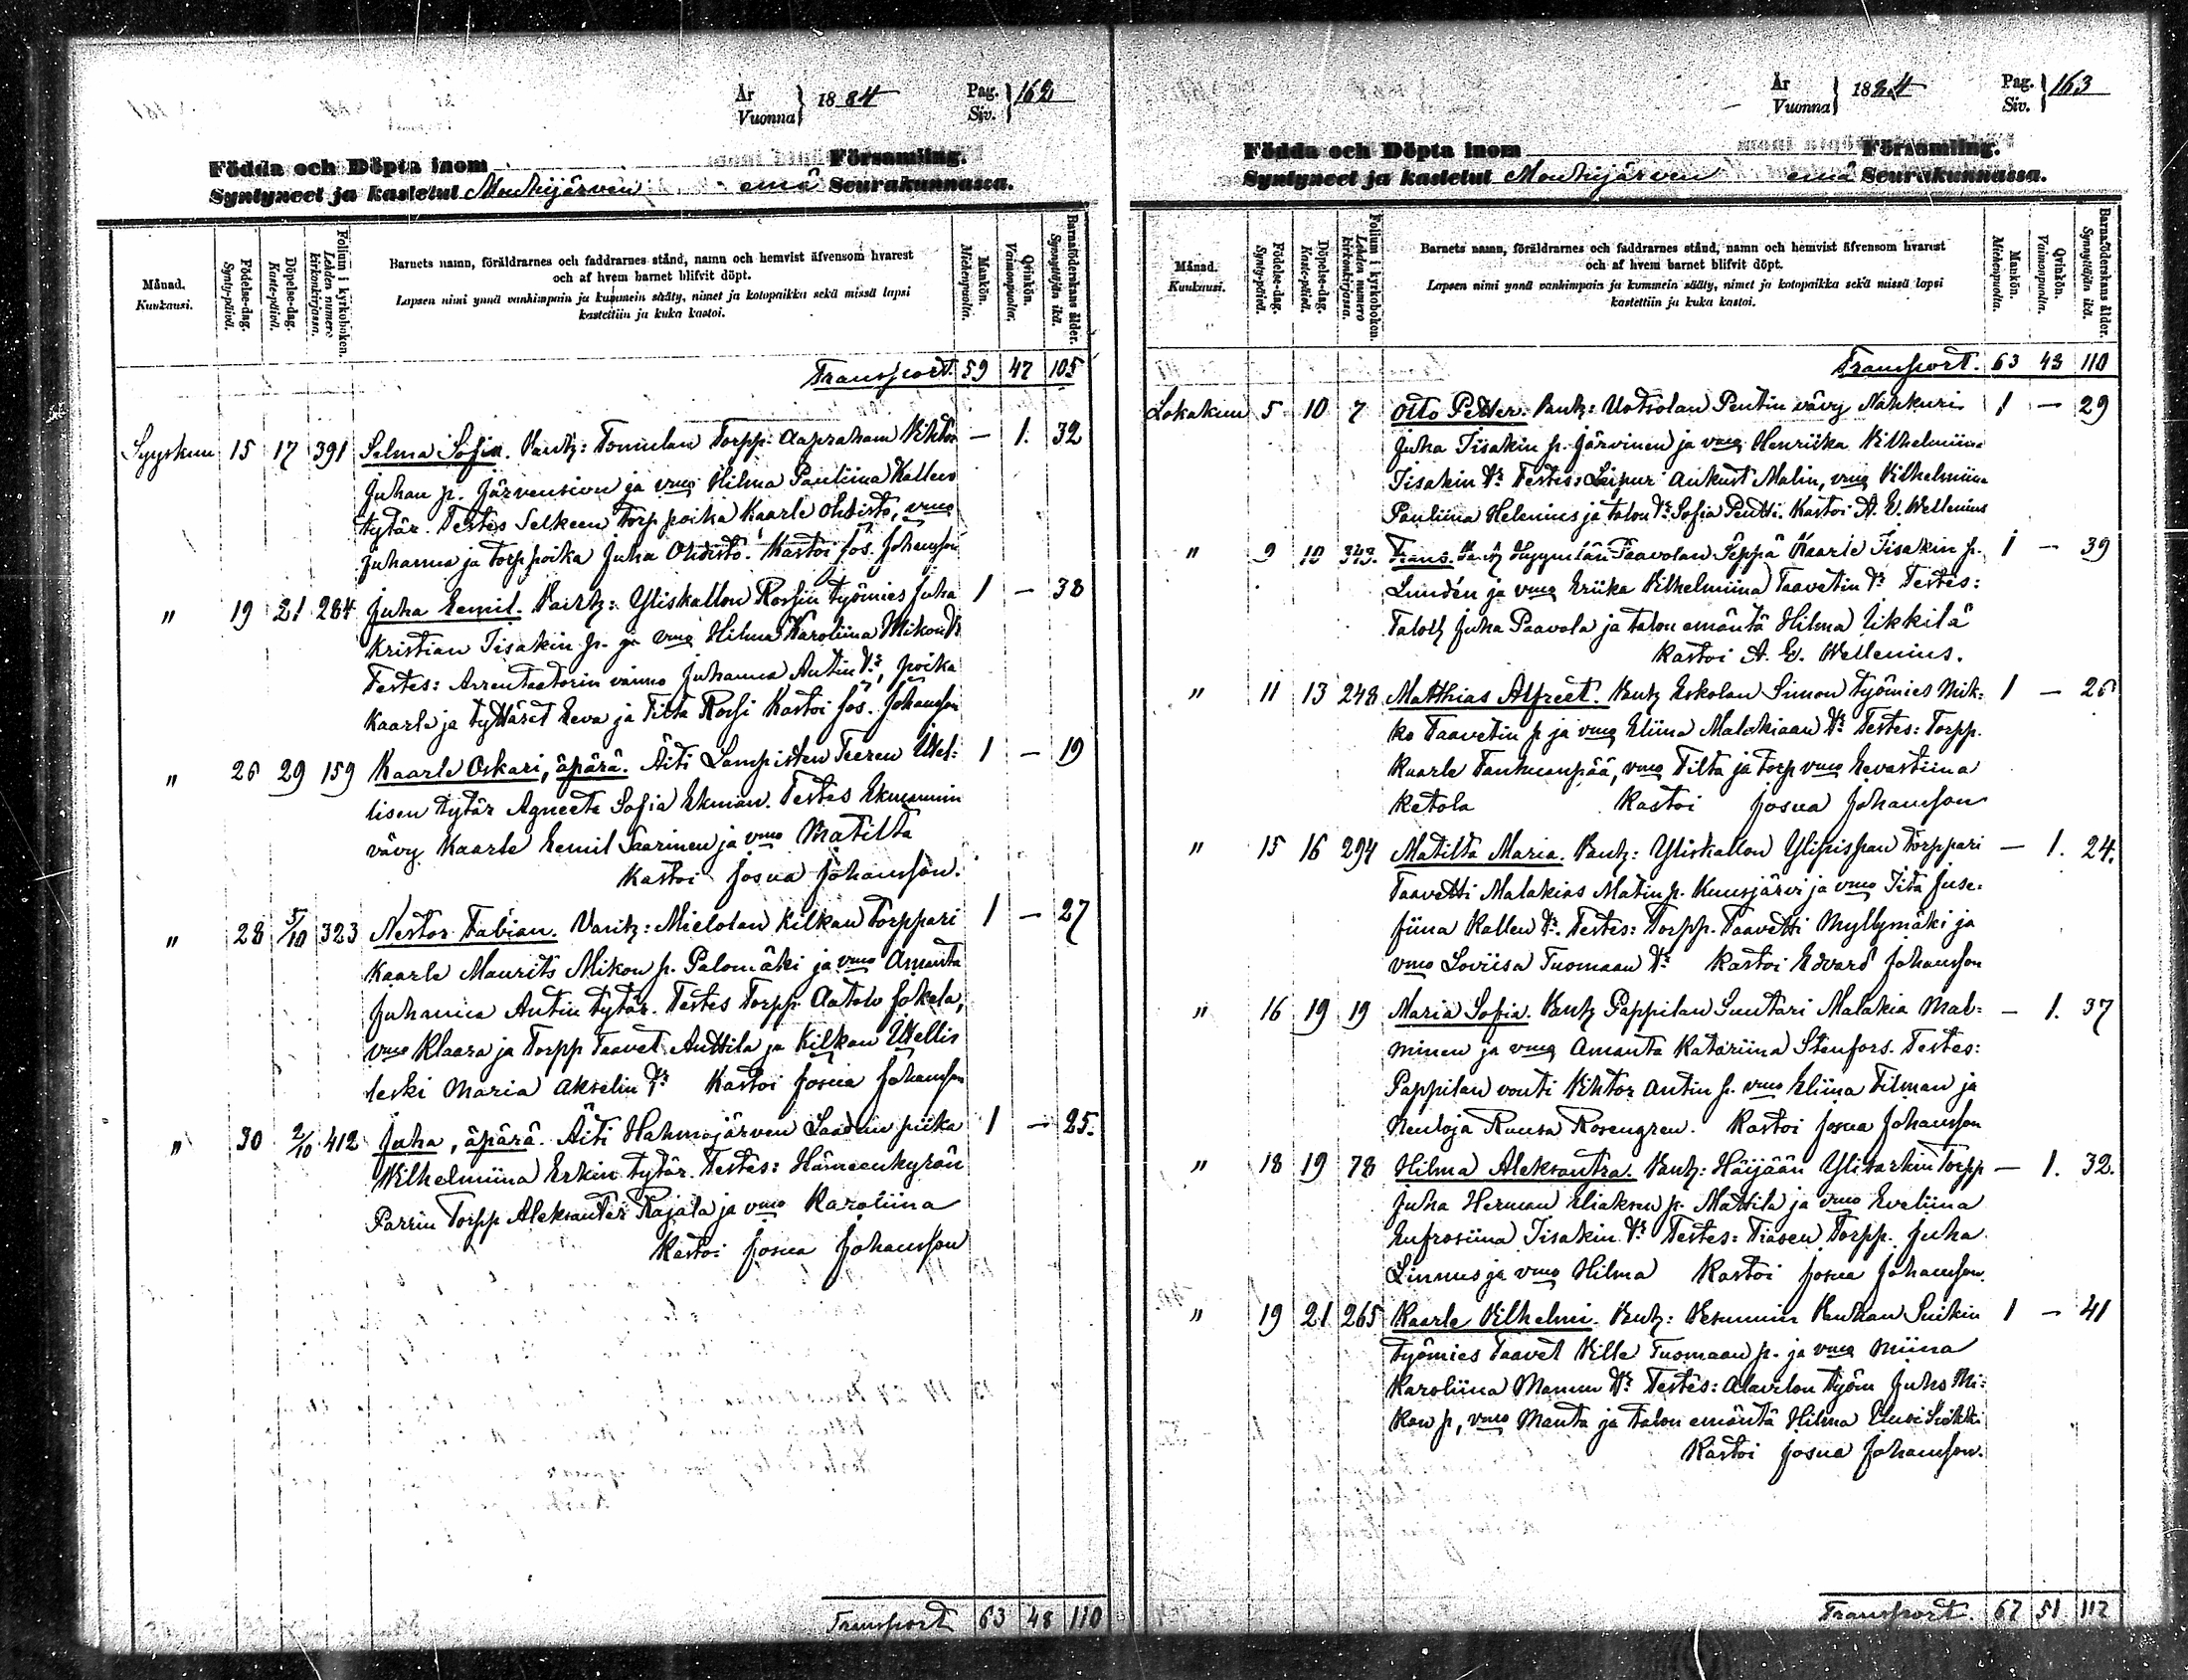 År
Vuonna } 1884 Pag. Siv. } 162
Födda och Döpta inom Församling.
Syntyneet ja kastetut Mouhijärven emä Seurakunnassa.
Månad. Kuukausi.
Födelse-dag. Synty-päivä.
Döpelse-dag. Kaste-päivä.
Folium i kyrkoboken. Lehden numero kirkonkirjassa.
Barnets namn, föräldrarnes och faddrarnes stånd, namn och hemvist äfvensom hvarest
och af hvem barnet blifvit döpt.
Lapsen nimi ynnä vanhimpain ja kummein sääty, nimet ja kotopaikka sekä missä lapsi
kastettiin ja kuka kastoi.
Mankön. Miehenpuolia.
Qvinkön. Vaimonpuolia.
Barnaföderskans ålder. Synnyttäjän ikä.
Transport. 59 47 105
Syyskuu 15 17 391 Selma Sofia. Vanh: Tomulan Torpp. Aapraham Vihtor — 1. 32
Juhan p. Järvensivu ja vmo Hilma Pauliina Kallen
tytär. Testes Selkeen Torp poika Kaarle Ohdisto, vmo
Juhanna ja Torp poika Juha Ohdisto. Kastoi Jos. Johansson
" 19 21 284 Juha Eemil. Vanh: Yliskallon Rossin työmies Juha 1 — 38
Kristian Iisakin p. ja vmo Hilma Karoliina Mikon tr
Testes: Arrentaatorin vaimo Juhanna Antin tr, poika
Kaarle ja tyttäret Eeva ja Tilta Rossi Kastoi Jos. Johansson
" 26 29 159 Kaarle Oskari, äpärä. Äiti Lampisten Teeren Itsel: 1 — 19
lisen tytär Agneeta Sofia Ekman. Testes Ekmannin
vävy Kaarle Eemil Saarinen ja vmo Matilta
Kastoi Josua Johansson.
" 28 5/10 323 Nestor Fabian. Vanh: Mielolan Kilkan Torppari 1 — 27
Kaarle Maurits Mikon p. Palomäki ja vmo Amanta
Juhanna Antin tytär. Testes Torpp. Aatolv Jokela,
vmo Klaara ja Torpp Taavet Anttila ja Kilkan Itsellis
leski Maria Akselin tr Kastoi Josua Johansson
" 30 2/10 412 Juha, äpärä. Äiti Hahmajärven Laadun piika 1 — 25.
Wilhelmiina Erkin tytär. Testes: Hämeenkyrön
Parrin Torpp Aleksanter Rajala ja vmo Karoliina
Kastoi Josua Johansson
Transport 63 48 110
År
Vuonna } 1884 Pag. Siv. } 163
Födda och Döpta inom Församling.
Syntyneet ja kastetut Mouhijärven emä Seurakunnassa.
Månad. Kuukausi.
Födelse-dag. Synty-päivä.
Döpelse-dag. Kaste-päivä.
Folium i kyrkoboken. Lehden numero kirkonkirjassa.
Barnets namn, föräldrarnes och faddrarnes stånd, namn och hemvist äfvensom hvarest
och af hvem barnet blifvit döpt.
Lapsen nimi ynnä vanhimpain ja kummein sääty, nimet ja kotopaikka sekä missä lapsi
kastettiin ja kuka kastoi.
Mankön. Miehenpuolia.
Qvinkön. Vaimonpuolia.
Barnaföderskans ålder. Synnyttäjän ikä.
Transport. 63 48 110
Lokakuu 5 10 7 Otto Petter. Vanh: Uotsolan Pentin vävy Nahkuri 1 — 29
Juha Iisakin p. Järvinen ja vmo Henriika Vilhelmiina
Iisakin tr Testes: Leipuri Aukust Malin, vmo Vilhelmiina
Pauliina Helenius ja talon tr Sofia Pentti. Kastoi A. E. Wellenius
" 9 10 343. Frans. Vanh Hyynilän Paavolan Seppä Kaarle Iisakin p. 1 — 39
Lundén ja vmo Eriika Vilhelmiina Taavetin tr Testes:
Taloll. Juha Paavola ja talon emäntä Hilma Uikkilä
Kastoi A. E. Wellenius.
" 11 13 248 Matthias Alfreet. Vanh Eskolan Simon työmies Mik: 1 — 26
ko Taavetin p ja vmo Eliina Malakiaan tr Testes: Torpp.
Kaarle Tankuanpää, vmo Tilta ja Torp vmo Eevastiina
Ketola Kastoi Josua Johansson
" 15 16 294 Matilta Maria. Vanh: Yliskallon Ylipispan Torppari — 1. 24.
Taavetti Malakias Matin p. Kuusjärvi ja vmo Iita Juse:
fiina Kallen tr. Testes: Torpp. Taavetti Myllymäki ja
vmo Loviisa Tuomaan tr Kastoi Edvard Johansson
" 16 19 19 Maria Sofia. Vanh Pappilan Suutari Malakia Mal: — 1. 37
minen ja vmo Amanta Katariina Stenfors. Testes:
Pappilan vouti Vihtor Antin p. vmo Eliina Tilman ja
Neuloja Ruusa Rosengren. Kastoi Josua Johansson
" 18 19 78 Hilma Aleksantra. Vanh: Häijään Ylisarkin Torpp — 1. 32.
Juha Herman Eliaksen p. Mattila ja vmo Eveliina
Eufrosiina Iisakin tr Testes: Tiasen Torpp. Juha
Linnus ja vmo Hilma Kastoi Josua Johansson.
" 19 21 265 Kaarle Vilhelmi. Vanh: Vesunnin Vanhan Suikin 1 — 41
työmies Taavet Ville Tuomaan p. ja vmo Miina
Karoliina Mannun tr Testes: Alavilon työm Juho Mi:
kon p, vmo Manta ja talon emäntä Hilma Uusi Suikki
Kastoi Josua Johansson.
Transport. 67 51 117